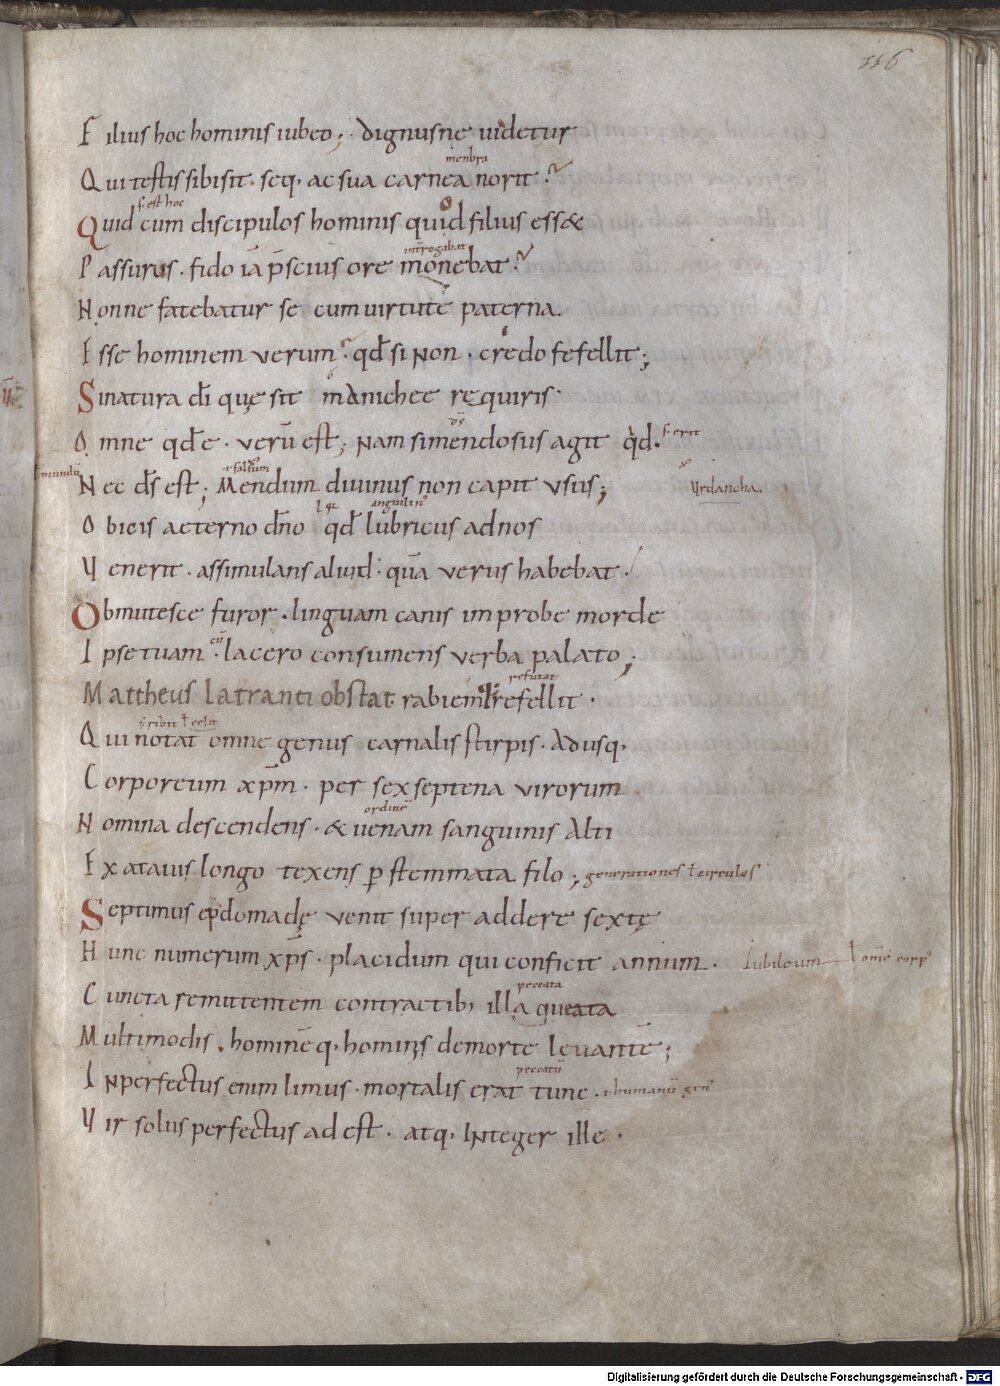 116
Filius hoc hominis iubeo; dignusne uidetur
menbra
Qui testis sibi sit · seq, ac sua carnea norit?
s. est hoc
Quid cum discipulos hominis quid filius esset
introgabat
Passurus · fido iā p̄scius ore monebat?
Nonne fatebatur se cum uirtute paterna.
Esse hominem verum · qđ si non · credo fefellit;
Si natura dī quę sit manichee requiris·
ds
Omne qđ ē · verū est; Nam si mendosus agit qđ. s. erit
mundū
falsum
Nec ds est; Mendum diuinus non capit vsus; Urdancha.
Obicis aeterno dn̄o qđ lubricus ad nos
Venerit · assimulans aliud · quā verus habebat·
Obmutesce furor · linguam canis improbe morde
Ipse tuam · lacero consumens verba palato;
refutat
Mattheus latranti obstat rabiem refellit ·
scribit ł celit
Qui notat omne genus carnalis stirpis · adusq,
Corporeum xp̄m · per sex septena virorum
ordinē
Nomina descendens · & uenam sanguinis alti
Ex atauis longo texens ꝑ stemmata filo; generationes ł circulos
Septimus epdomadę venit super addere sextę
Hunc numerum xp̄s · placidum qui conficit annum · Iubileum
peccata
Cuncta remittentem contractib, illaqueata
Multimodis · hominēq, hominis de morte leuantē;
peccatū
Inperfectus enim limus · mortalis erat tunc · i. humanū gen⁹
Vir solus perfectus adest · atq, Integer ille ·
Digitalisierung gefördert durch die Deutsche Forschungsgemeinschaft - DFG